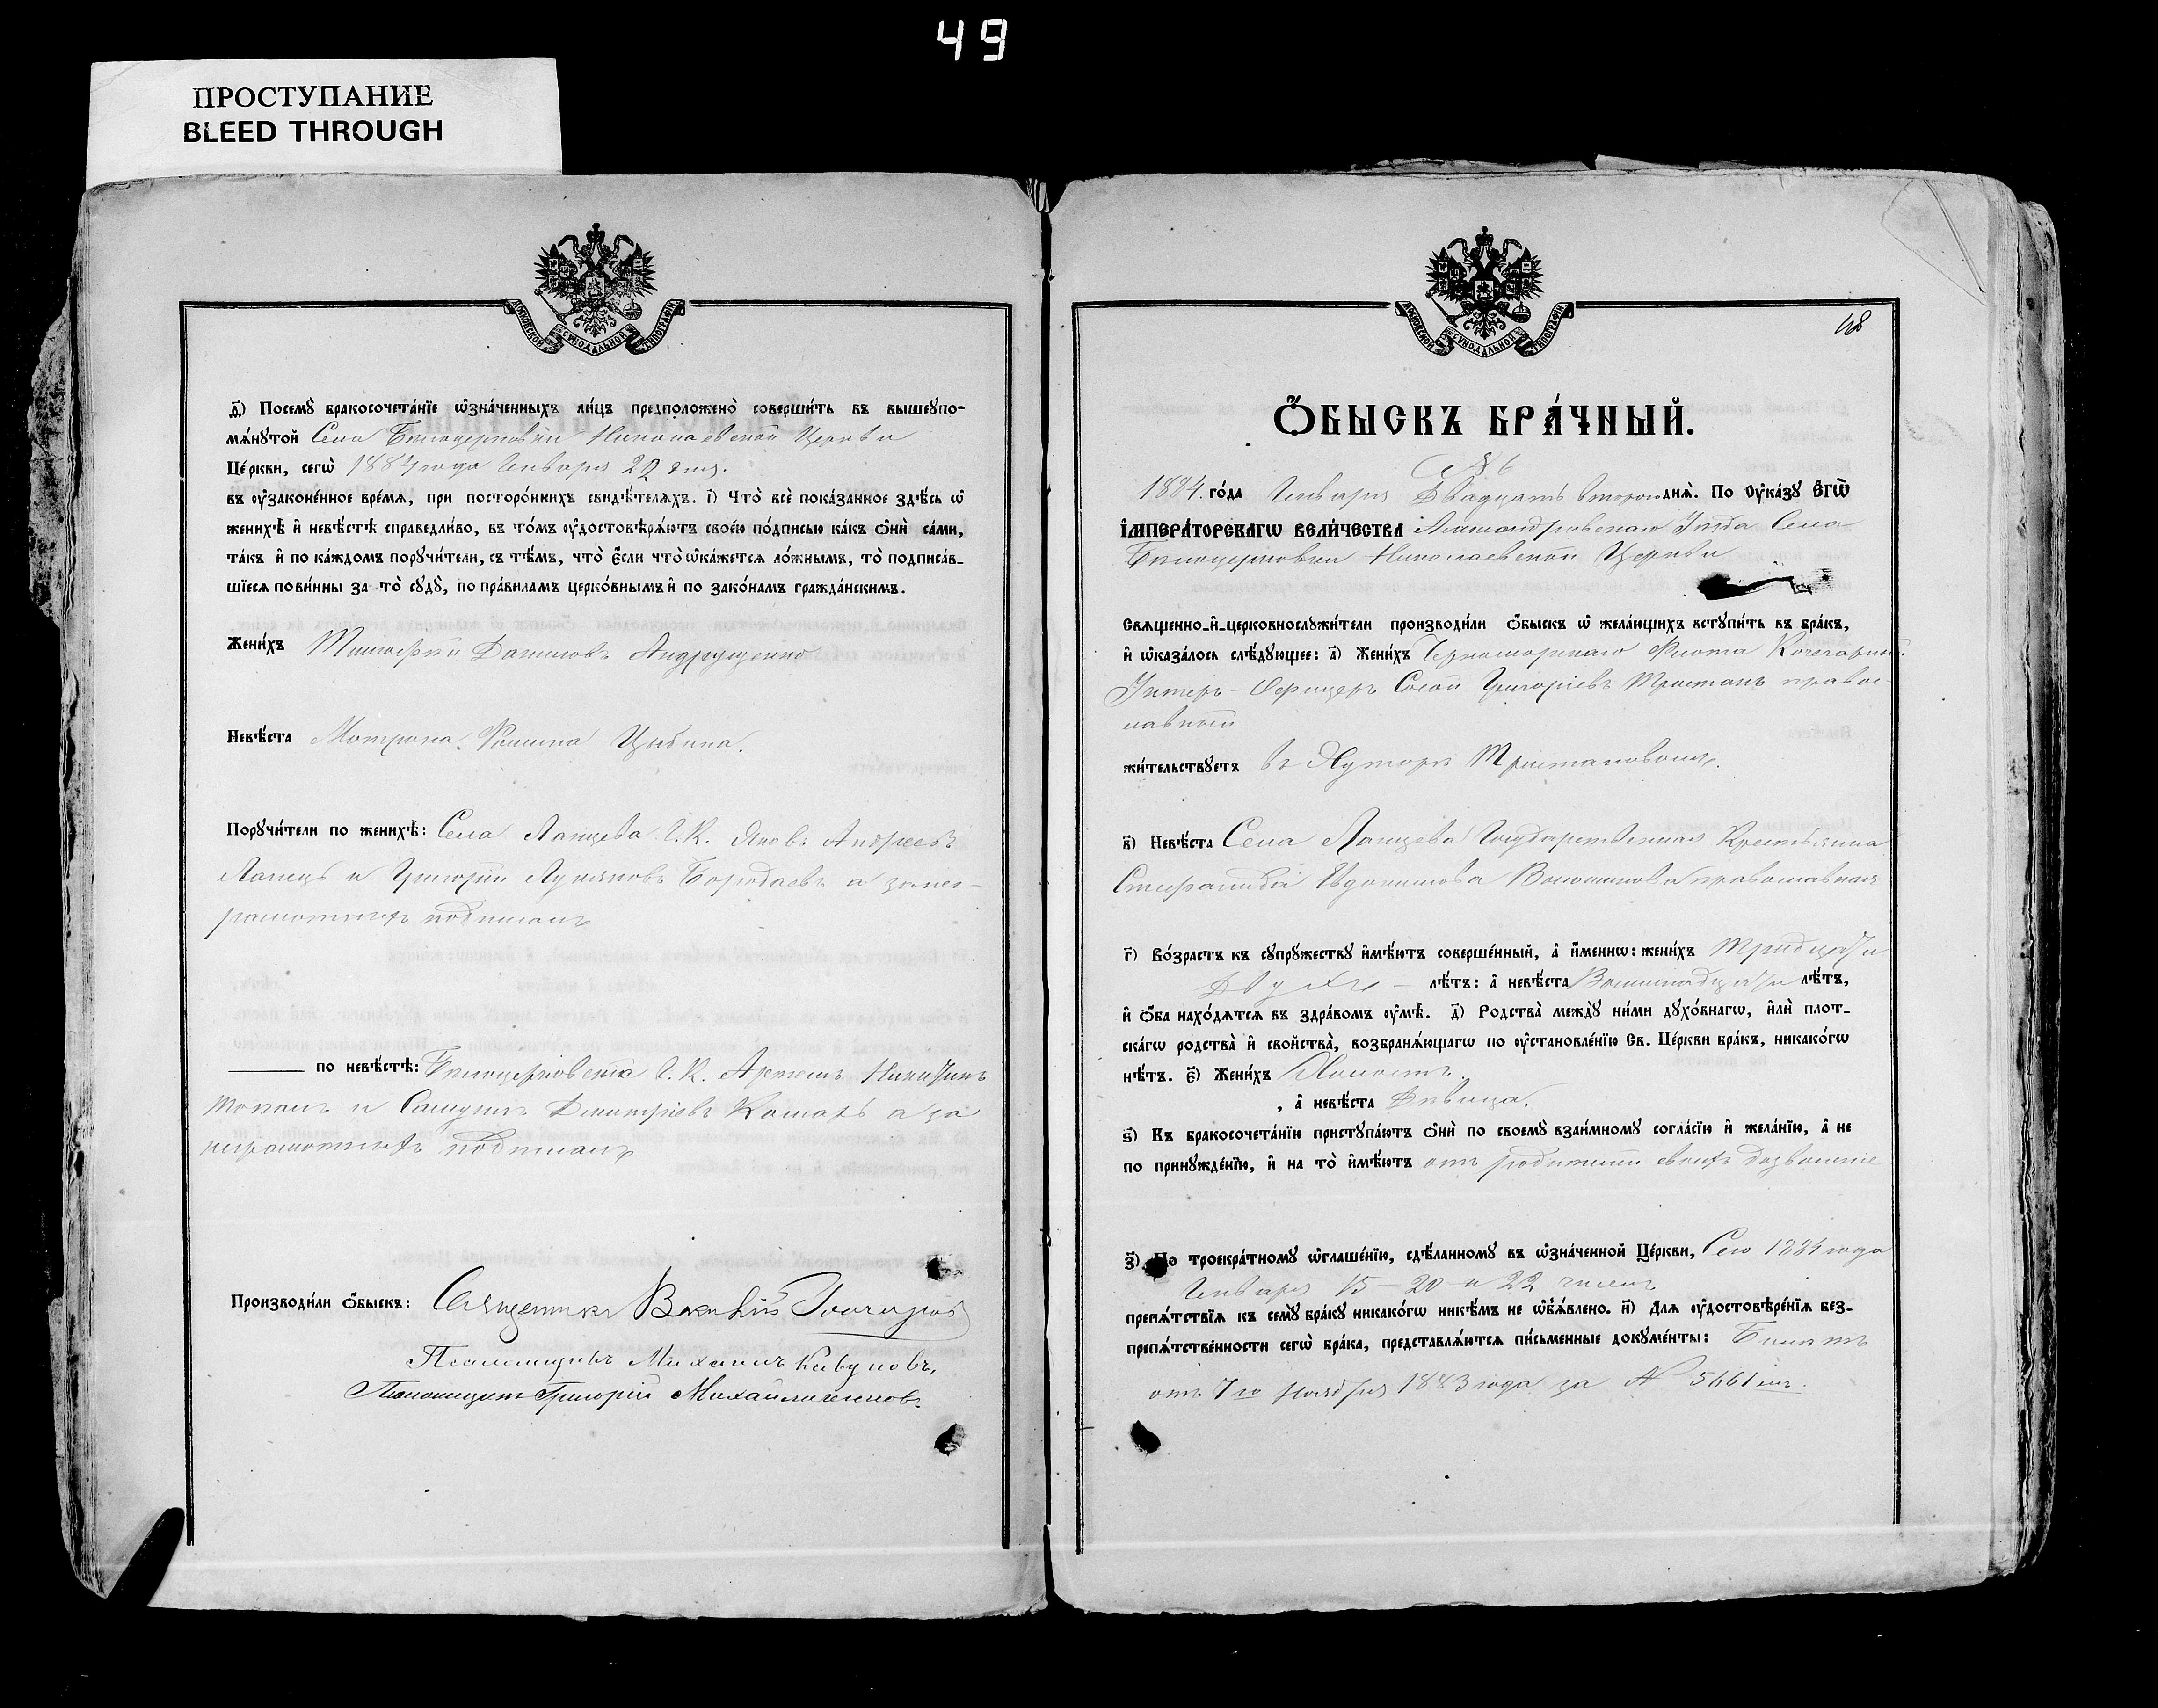 49
ПРОСТУПАНИЕ
BLEED THROUGH
МОСКОВСКОЙ СѴНОДАЛЬНОЙ ТИПОГРАФІИ
Посемꙋ̀ бракосочета́нїе ѡ҆зна́ченныхъ ли́цъ предположено̀ соверши́ть въ вышеꙋпо-
мѧ́нꙋтой Села Бѣлоцерковки Николаевской Церкви
Це́ркви, сегѡ̀ 1884 года Января 22 дня.
въ ᲂу҆законе́нное вре́мѧ, при посторо́ннихъ свидѣ́телѧхъ. і҃) Что̀ всѐ пока́занное здѣ́сь ѡ҆
женихѣ̀ и҆ невѣ́стѣ справедли́во, въ то́мъ ᲂу҆достовѣрѧ́ютъ свое́ю по́дписью ка́къ ѻ҆нѝ са́ми,
та́къ и҆ по ка́ждомъ порꙋчи́тели, съ тѣ́мъ, что̀ є҆́сли что̀ ѡ҆ка́жетсѧ ло́жнымъ, то̀ подписа́в-
шїесѧ пови́нны за то̀ сꙋдꙋ̀, по пра́виламъ церко́внымъ и҆ по зако́намъ гражда́нскимъ.
Жени́хъ Тимофей Данилов Андрущенко
Невѣ́ста Мотрона Фомина Цыбина.
Порꙋчи́тели по женихѣ̀: Села Лапцева Г. К. Яковъ Андреевъ
Лапецъ и Григорій Лукяновъ Бородаевъ а за нег-
рамотныхъ подписалъ
по невѣ́стѣ: Бѣлоцерковскія Г. К. Артемъ Никитинъ
и Дмитріевъ Комаръ а за
неграмотныхъ подписалъ
Производи́ли ѻ҆́быскъ: Священникъ
Псаломщикъ Михаилъ
Псаломщикъ Григорій Михайличенковъ
48
МОСКОВСКОЙ СѴНОДАЛЬНОЙ ТИПОГРАФІИ
Ѻ҆́БЫСКЪ БРА́ЧНЫЙ.
№ 6
1884. го́да Января Двадцать второго днѧ̀. По ᲂу҆ка́зꙋ є҆гѡ̀
і҆мпера́торскагѡ вели́чества Александровскаго Уѣзда Села
Бѣлоцерковки Николаевской Церкви
Свѧщенно-и҆-церковнослꙋжи́тели производи́ли ѻ҆́быскъ ѡ҆ жела́ющихъ встꙋпи́ть въ бра́къ,
и҆ ѡ҆каза́лось слѣ́дꙋющее: а҃) Жени́хъ Черноморскаго Флота Кочегарный
Унтеръ-Офицеръ Григоріевъ Тристанъ правос-
лавный
жи́тельствꙋетъ въ Хуторѣ Тристановомъ.
в҃) Невѣ́ста Села Лапцева Государственная Крестьянка
Евдокимова православная
г҃) Во́зрастъ къ сꙋпрꙋ́жествꙋ и҆мѣ́ютъ соверше́нный, а҆ и҆́менно: жени́хъ тридцати
двухъ — лѣ́тъ: а҆ невѣ́ста Восемнадцати лѣ́тъ,
и҆ ѻ҆́ба нахо́дѧтсѧ въ здра́вомъ ᲂу҆мѣ̀. д҃) Родства̀ междꙋ̀ ни́ми дꙋхо́внагѡ, и҆лѝ плот-
ска́гѡ родства̀ и҆ сво́йства, возбранѧ́ющагѡ по ᲂу҆становле́нїю Св. Це́ркви бра́къ, никако́гѡ
нѣ́тъ. є҃) Жени́хъ Холостъ.
, а҆ невѣ́ста Дѣвица.
ѕ҃) Къ бракосочета́нїю пристꙋпа́ютъ ѻ҆нѝ по своемꙋ̀ взаи́мномꙋ согла́сїю и҆ жела́нїю, а҆ не
по принꙋжде́нїю, и҆ на то̀ и҆мѣ́ютъ отъ родителей своихъ дозволеніе
з҃) По троекра́тномꙋ ѡ҆глаше́нїю, сдѣ́ланномꙋ въ ѡ҆зна́ченной Це́ркви, Сего 1884 года
Января 15—20 и 22 чиселъ
препѧ́тствїѧ къ семꙋ̀ бра́кꙋ никако́гѡ никѣ́мъ не ѡ҆б̾ѧ́влено. и҃) Длѧ ᲂу҆достовѣре́нїѧ без-
препѧ́тственности сегѡ̀ бра́ка, представлѧ́ютсѧ пи́сьменные докꙋме́нты: Билетъ
отъ 7го Ноября 1883 года за № 5661мъ.